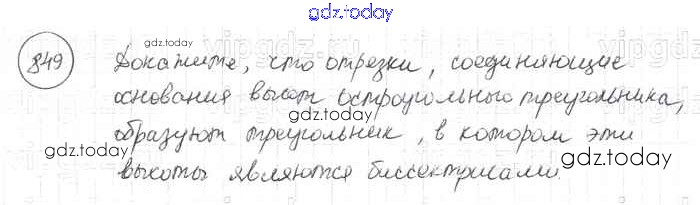 gdz.today
849 Докажите, что отрезки, соединяющие
gdz.today
основания высот остроугольного треугольника,
gdz.today
образуют треугольник, в котором эти
gdz.today
gdz.today
высоты являются биссектрисами.